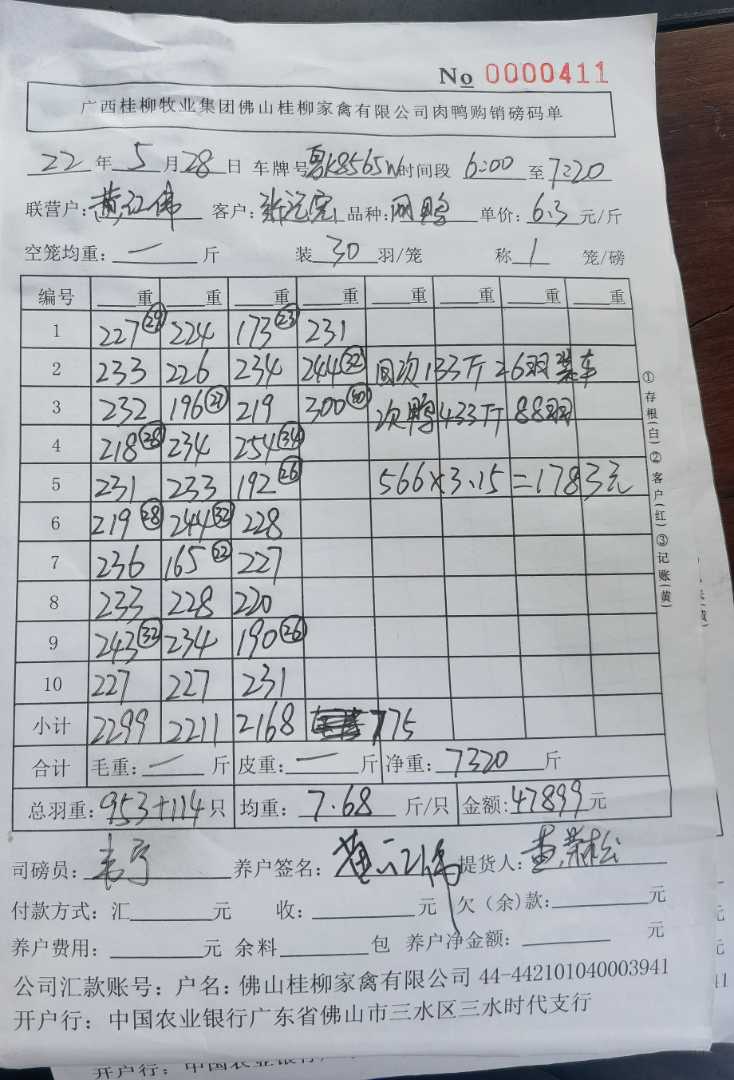 No 0000411
广西桂柳牧业集团佛山桂柳家禽有限公司肉鸭购销磅码单
22 年 5 月 28 日 车牌号 K8565W 时间段 6:00 至 7:20
联营户: 黄江伟 客户: 品种: 鸭 单价: 6.3 元/斤
空笼均重: 一 斤 装 30 羽/笼 称 1 笼/磅
编号 重 重 重 重 重 重 重 重
1 227 (29) 224 173 (23) 231
2 233 226 234 244 (32) 回次133斤 26羽 装车
3 232 196 (27) 219 300 (40) 次鸭433斤 88羽
4 218 (28) 234 254 (34)
5 231 233 192 (26) 566×3.15=1783元
6 219 (28) 244 (32) 228
7 236 165 (22) 227
8 233 228 220
9 243 (32) 234 190 (26)
10 227 227 231
小计 2299 2211 2168 775
合计 毛重: 一 斤 皮重: 一 斤 净重: 7320 斤
总羽重: 953+114 只 均重: 7.68 斤/只 金额: 47899 元
司磅员: 养户签名: 提货人:
付款方式: 汇 元 收: 元 欠(余)款: 元
养户费用: 元 余料 包 养户净金额: 元
公司汇款账号: 户名: 佛山桂柳家禽有限公司 44-442101040003941
开户行: 中国农业银行广东省佛山市三水区三水时代支行
①存根(白)②客户(红)③记账(黄)